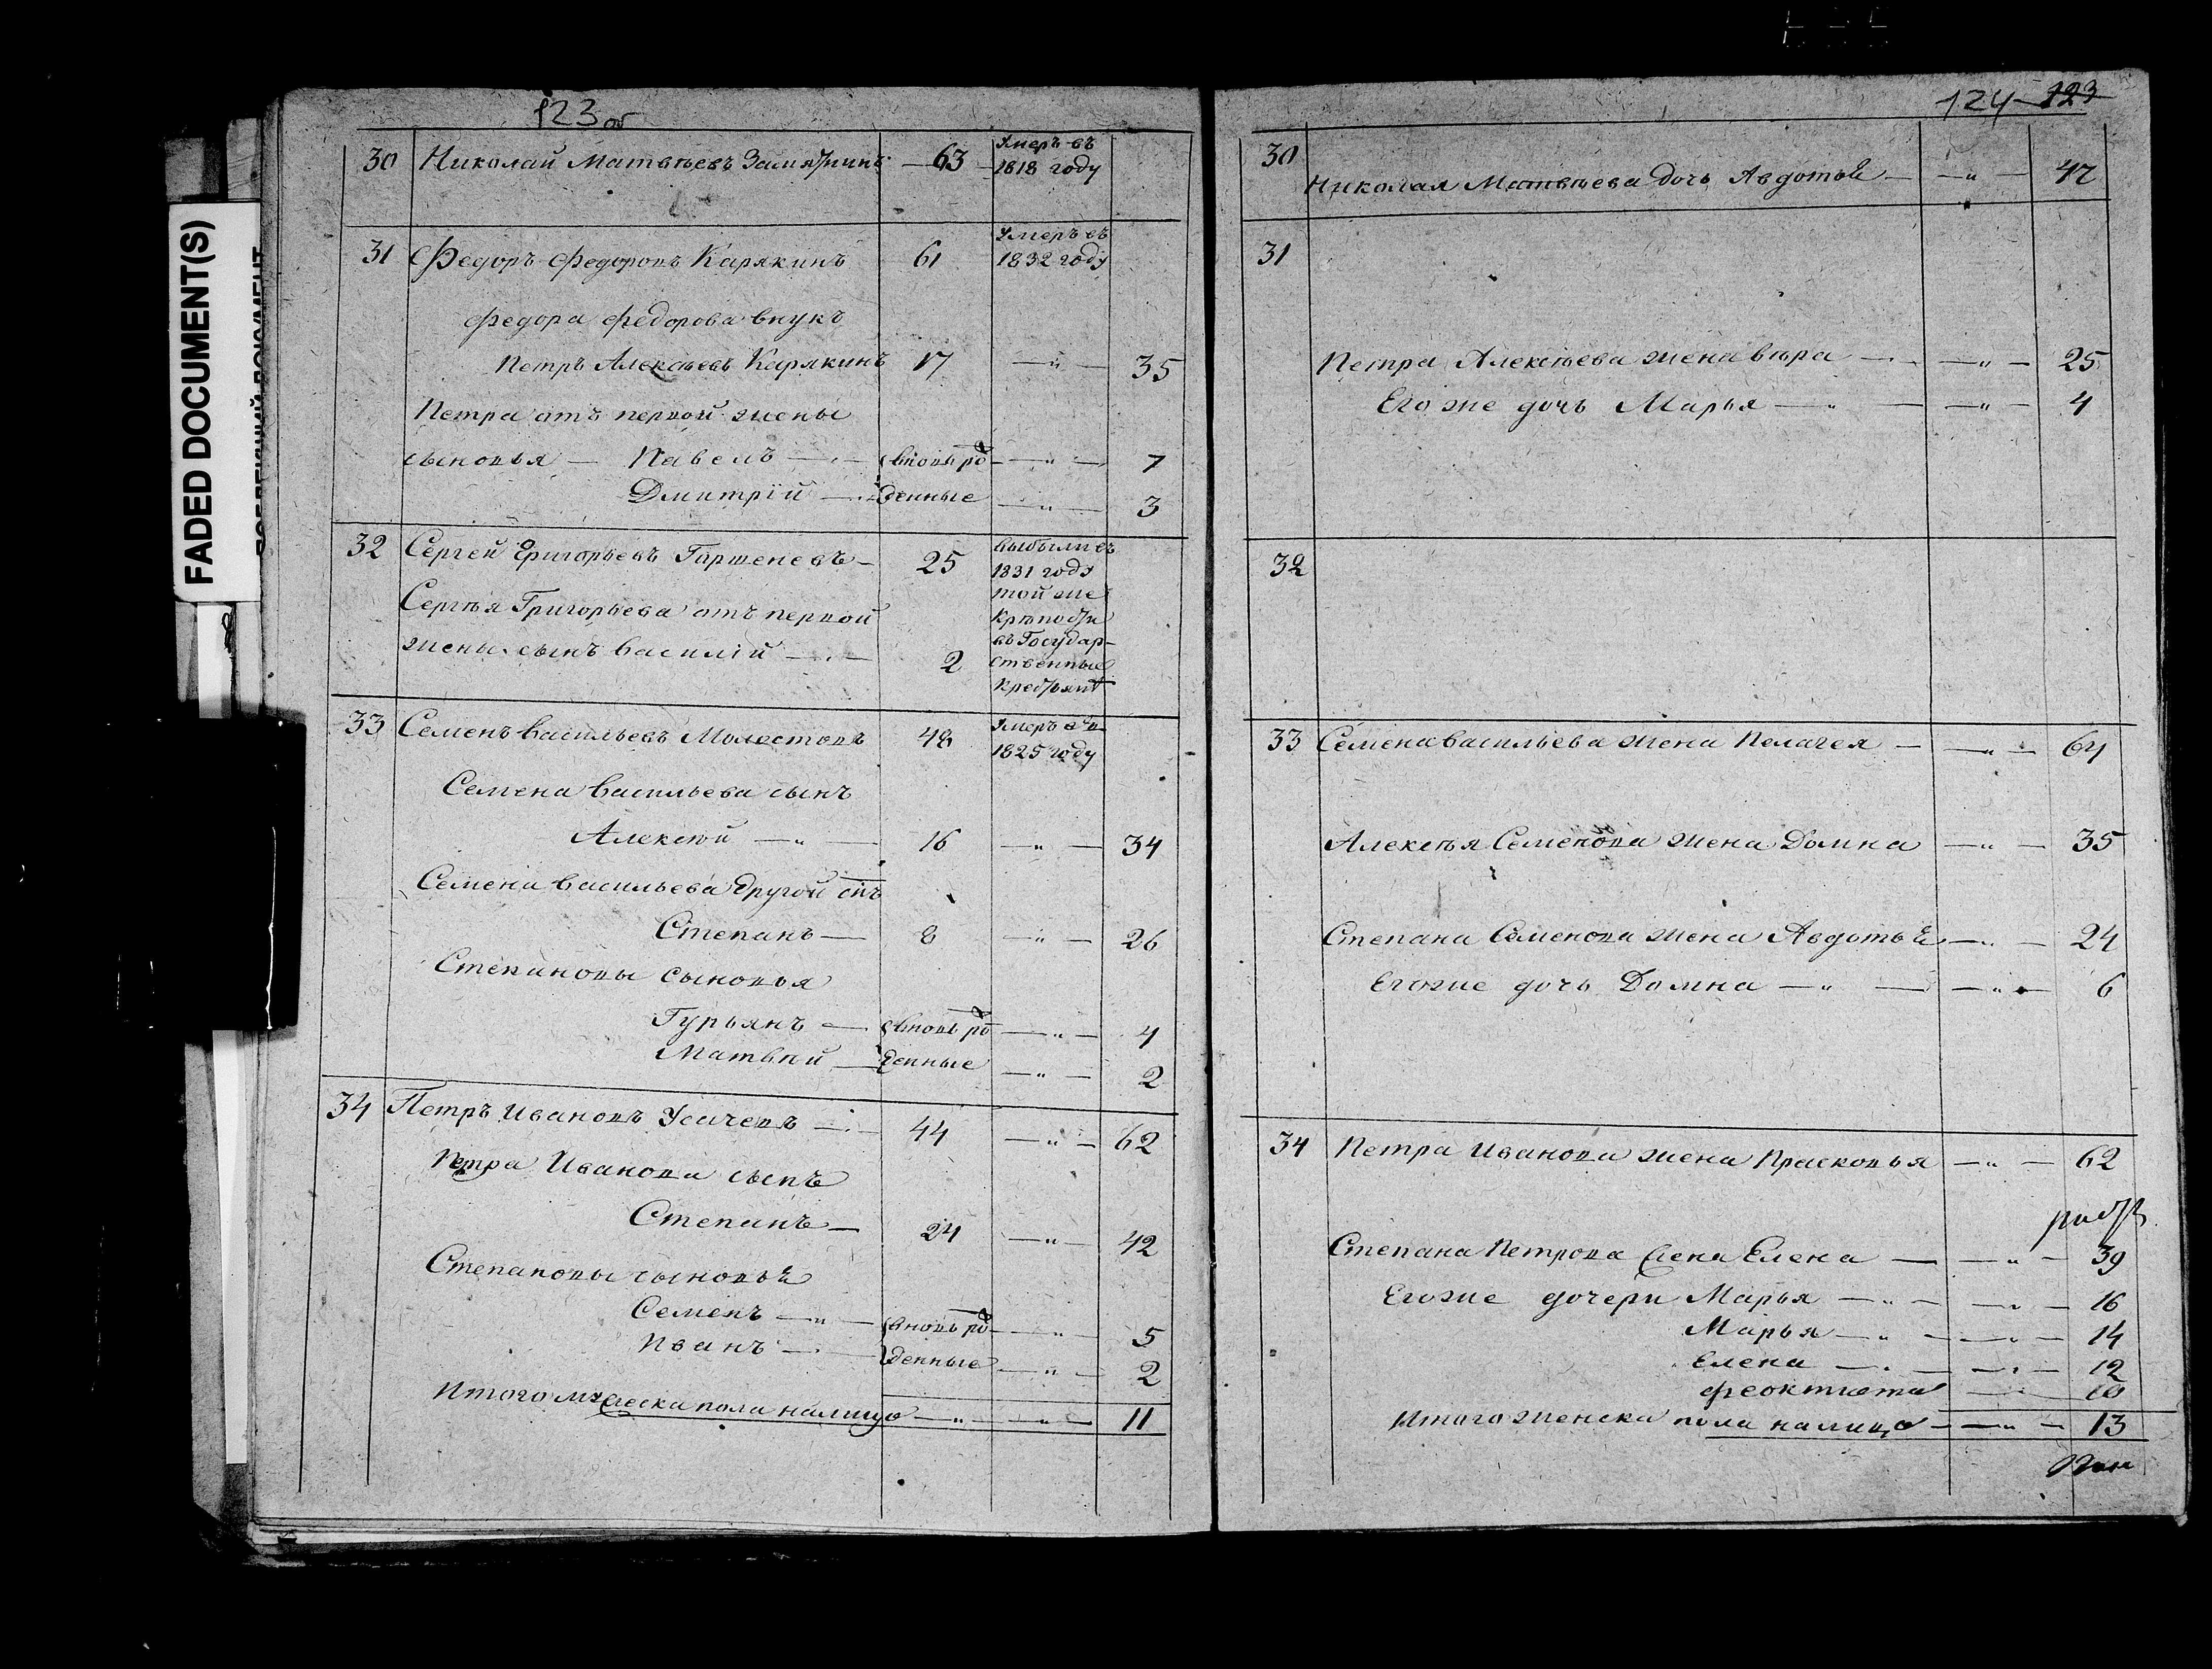 FADED DOCUMENT(S)
123 об
30 Николай Матвѣевъ Замятнинъ 63 Умеръ въ
1818 году
31 Федоръ Федоровъ Карякинъ 61 Умеръ въ
1832 году
Федора Федорова внукъ
Петръ Алексѣевъ Карякинъ 17 — " — 35
Петра отъ первой жены
сыновья — Павелъ — вновь рож — " — 7
Дмитрій — денные — " — 3
32 Сергей Григорьевъ Гаршеневъ — 25 выбыли въ
1831 году
той же
Сергѣя Григорьева отъ первой крѣпости
въ Государ-
жены сынъ Василій — 2 ственные
крестьяне
33 Семенъ Васильевъ Молостовъ 48 Умеръ въ
1825 году
Семена Васильева сынъ
Алексѣй — " — 16 — " — 34
Семена Васильева другой снъ
Степанъ — 8 — " — 26
Степановы сыновья
Гурьянъ — вновь рож — " — 4
Матвѣй — денные — " — 2
34 Петръ Ивановъ Усачевъ — 44 — " — 62
Петра Иванова сынъ
Степанъ — 24 — " — 42
Степановы сыновья
Семенъ — " — вновь рож — " — 5
Иванъ — денные — " — 2
Итого мужеска пола налицо — " — " — 11
124 123
30
Николая Матвѣева дочь Авдотья — — " — 47
31
Петра Алексѣева жена Вѣра — — " — 25
Его же дочь Марья — " — — " — 4
32
33 Семена Васильева жена Пелагея — — " — 64
Алексѣя Семенова жена Домна — " — 35
Степана Семенова жена Авдотья — " — 24
Егоже дочь Домна — " — — " — 6
34 Петра Иванова жена Прасковья — " — 62
Степана Петрова жена Елена — — " — 39
Егоже дочери Марья — " — — " — 16
Марья — " — — " — 14
Елена — — " — 12
Феоктиста — " — 10
Итого женска пола налицо — — " — 13